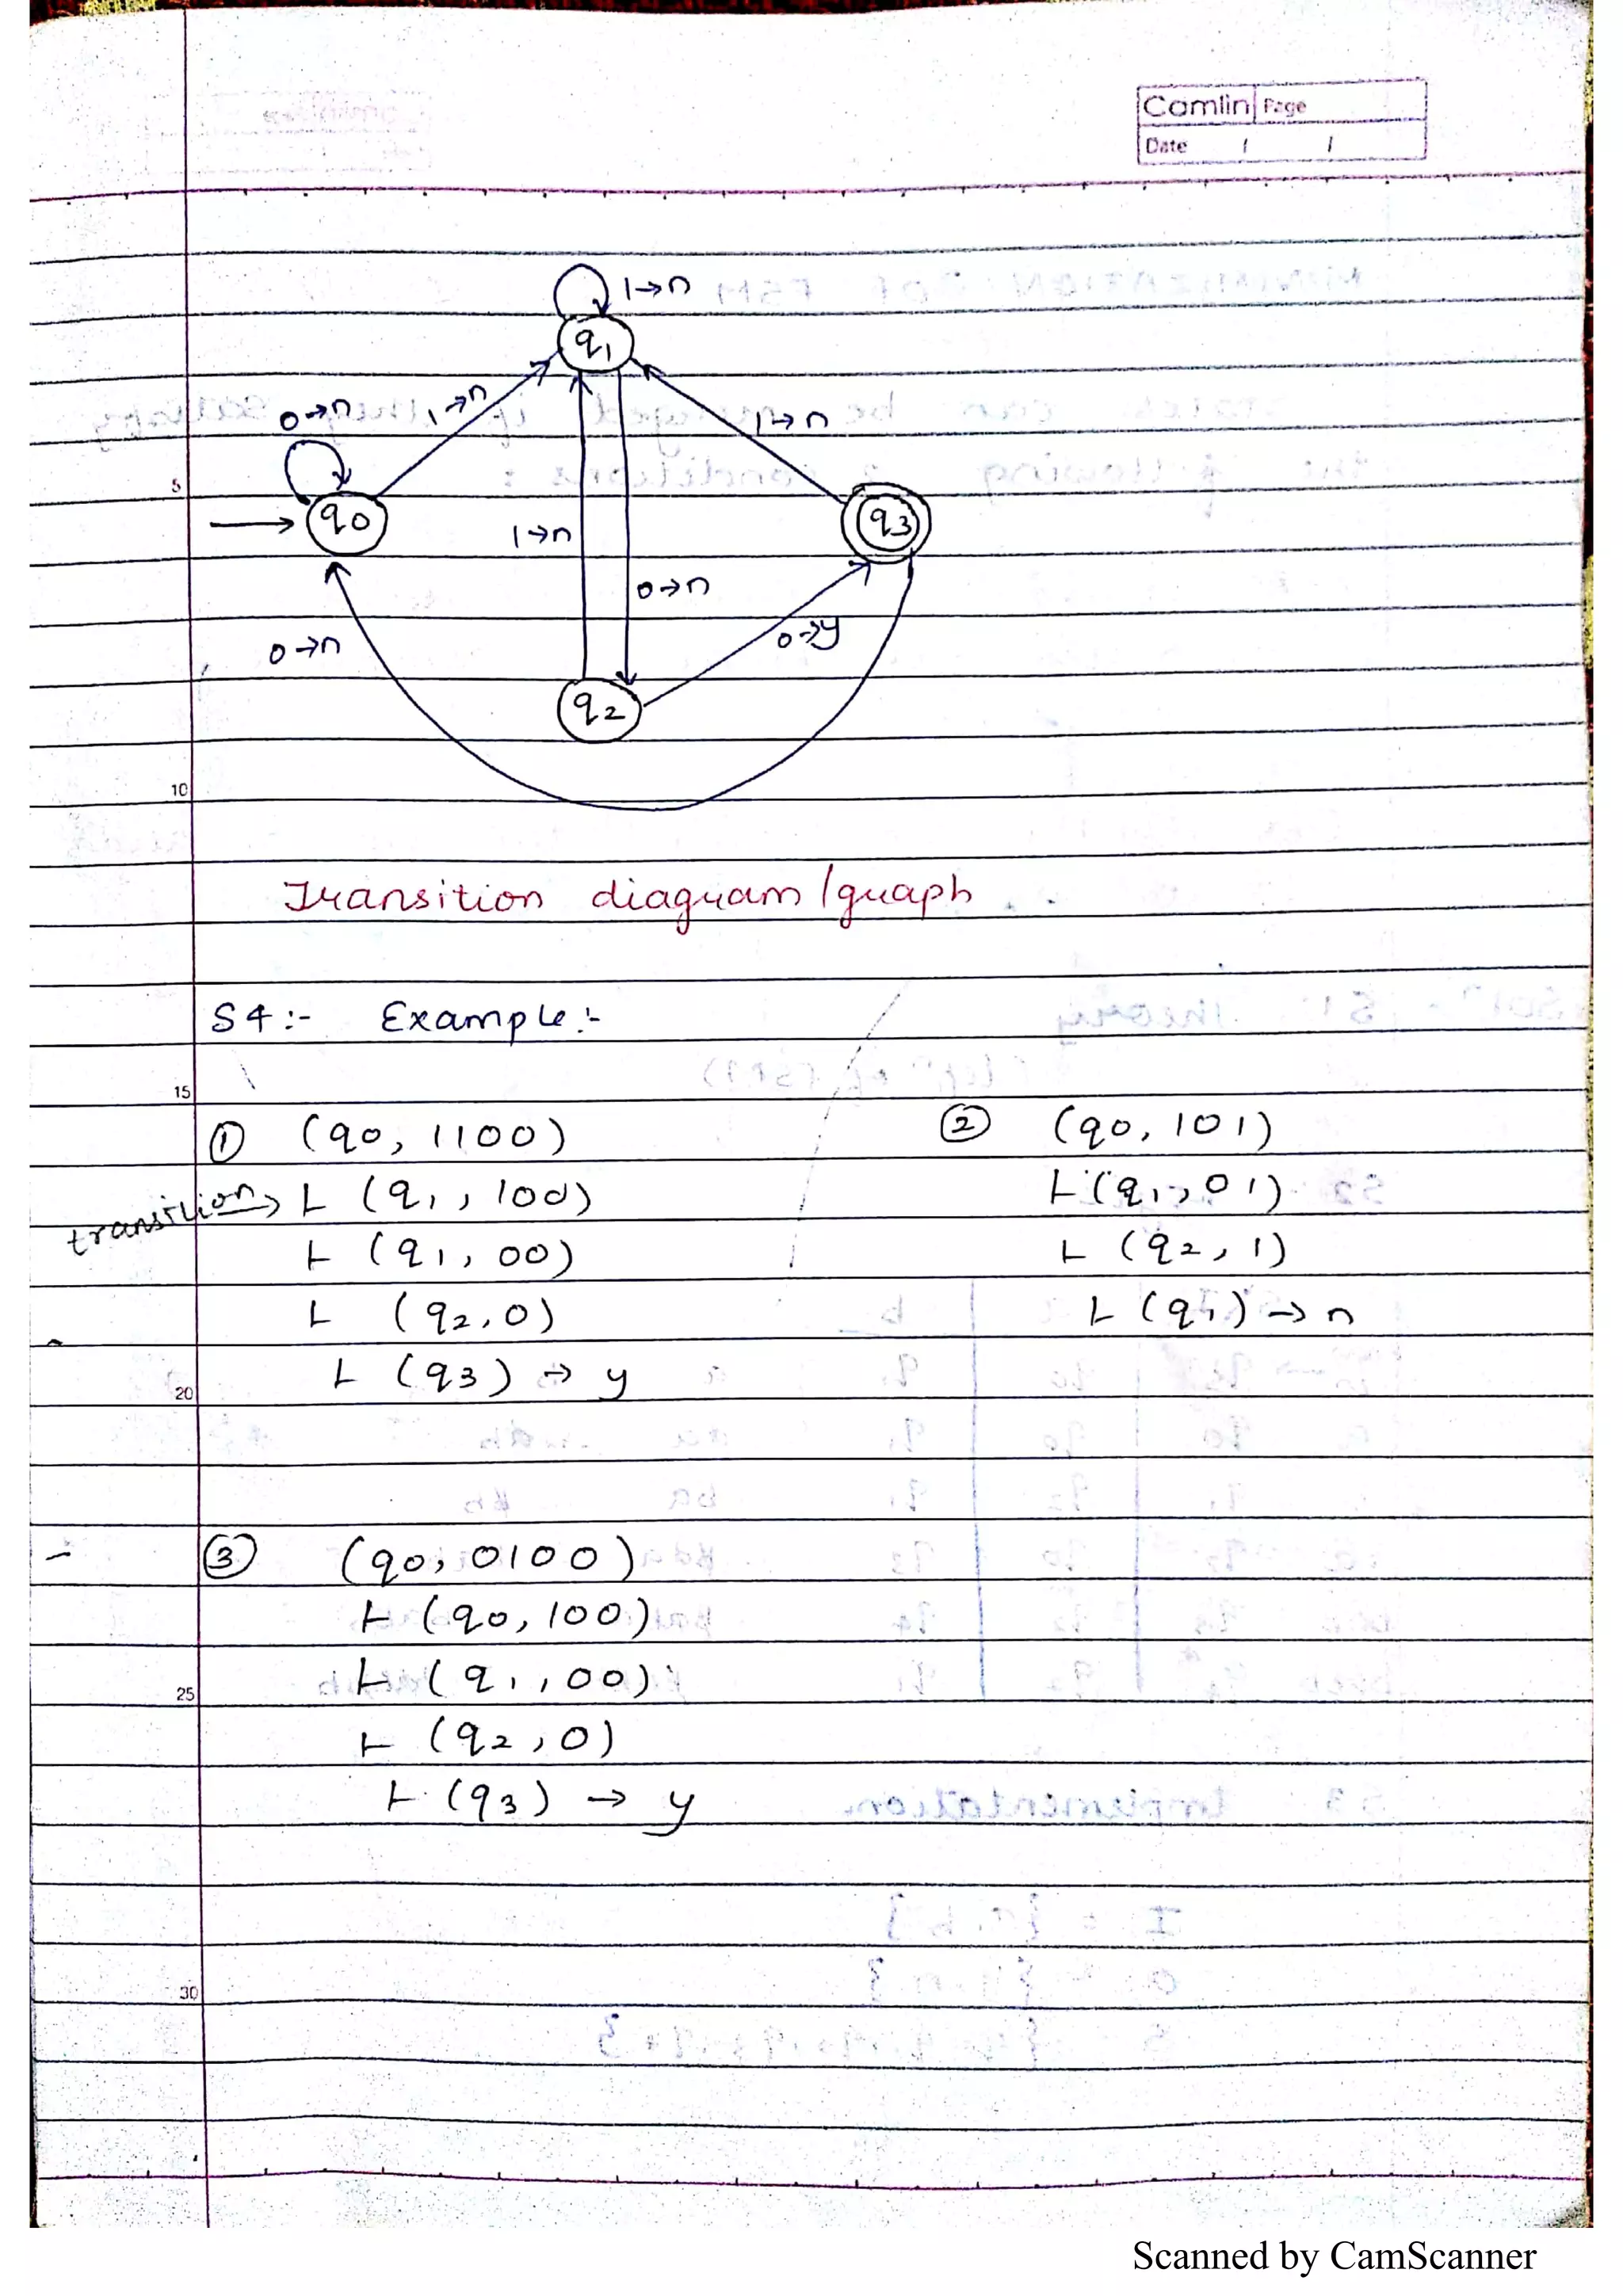 Camlin Page
Date / /
1→n
q1
0→n
1→n
1→n
5
q0
1→n
q3
0→n
0→n
0→y
q2
10
Transition diagram/graph
S4:- Example:-
15
① (q0, 1100)
transition→ ⊢ (q1, 100)
⊢ (q1, 00)
⊢ (q2, 0)
⊢ (q3) → y
② (q0, 101)
⊢ (q1, 01)
⊢ (q2, 1)
⊢ (q1) → n
20
③ (q0, 0100)
⊢ (q0, 100)
⊢ (q1, 00)
25
⊢ (q2, 0)
⊢ (q3) → y
30
Scanned by CamScanner